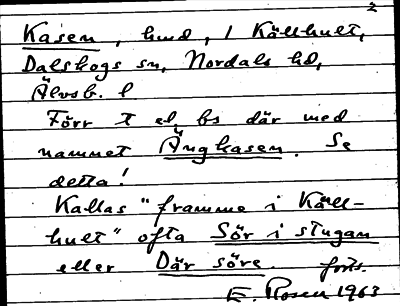 2
Kasen, hmd, 1 Källhult,
Dalskogs sn, Nordals hd,
Älvsb. l
Förr t el bs där med
namnet Ängkasen. Se
detta!
Kallas "framme i Käll-
hult" ofta Sör i stugan
eller Där söre. forts.
E. Rosen 1963